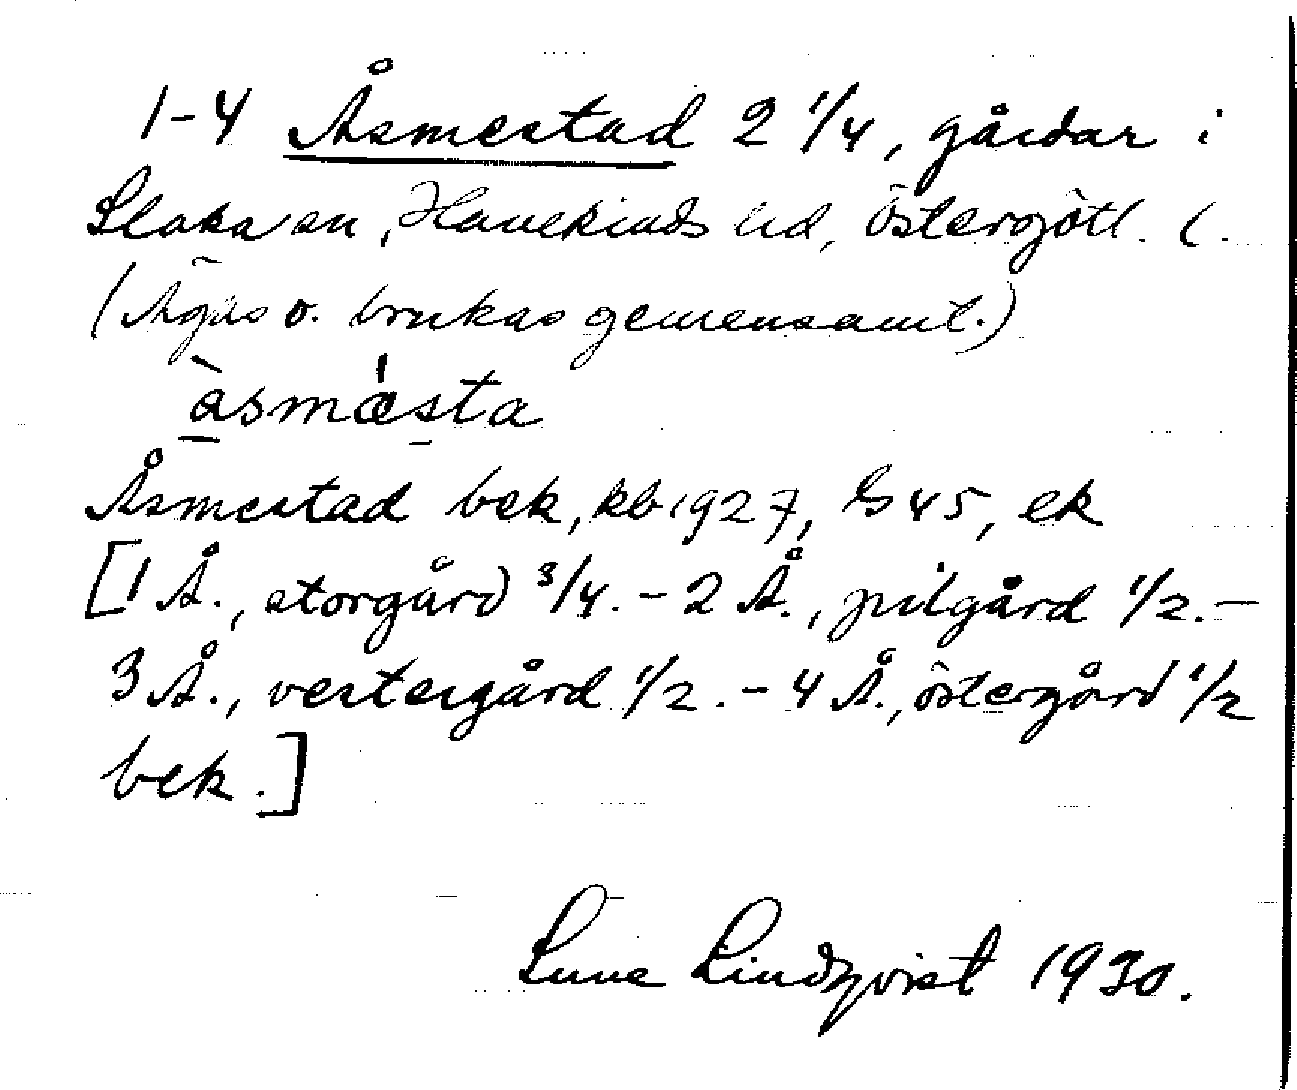 1-4 Åsmestad 2 1/4, gårdar i
Slaka sn, Hanekinds hd, Östergötl. l.
(Ägas o. brukas gemensamt.)
àsmæ̀sta
Åsmestad bek, kb 1927, G 45, ek
[1 Å., storgård 3/4. - 2 Å., pilgård 1/2. -
3 Å., vestergård 1/2. - 4 Å., östergård 1/2
bek.]
Sune Lindqvist 1930.